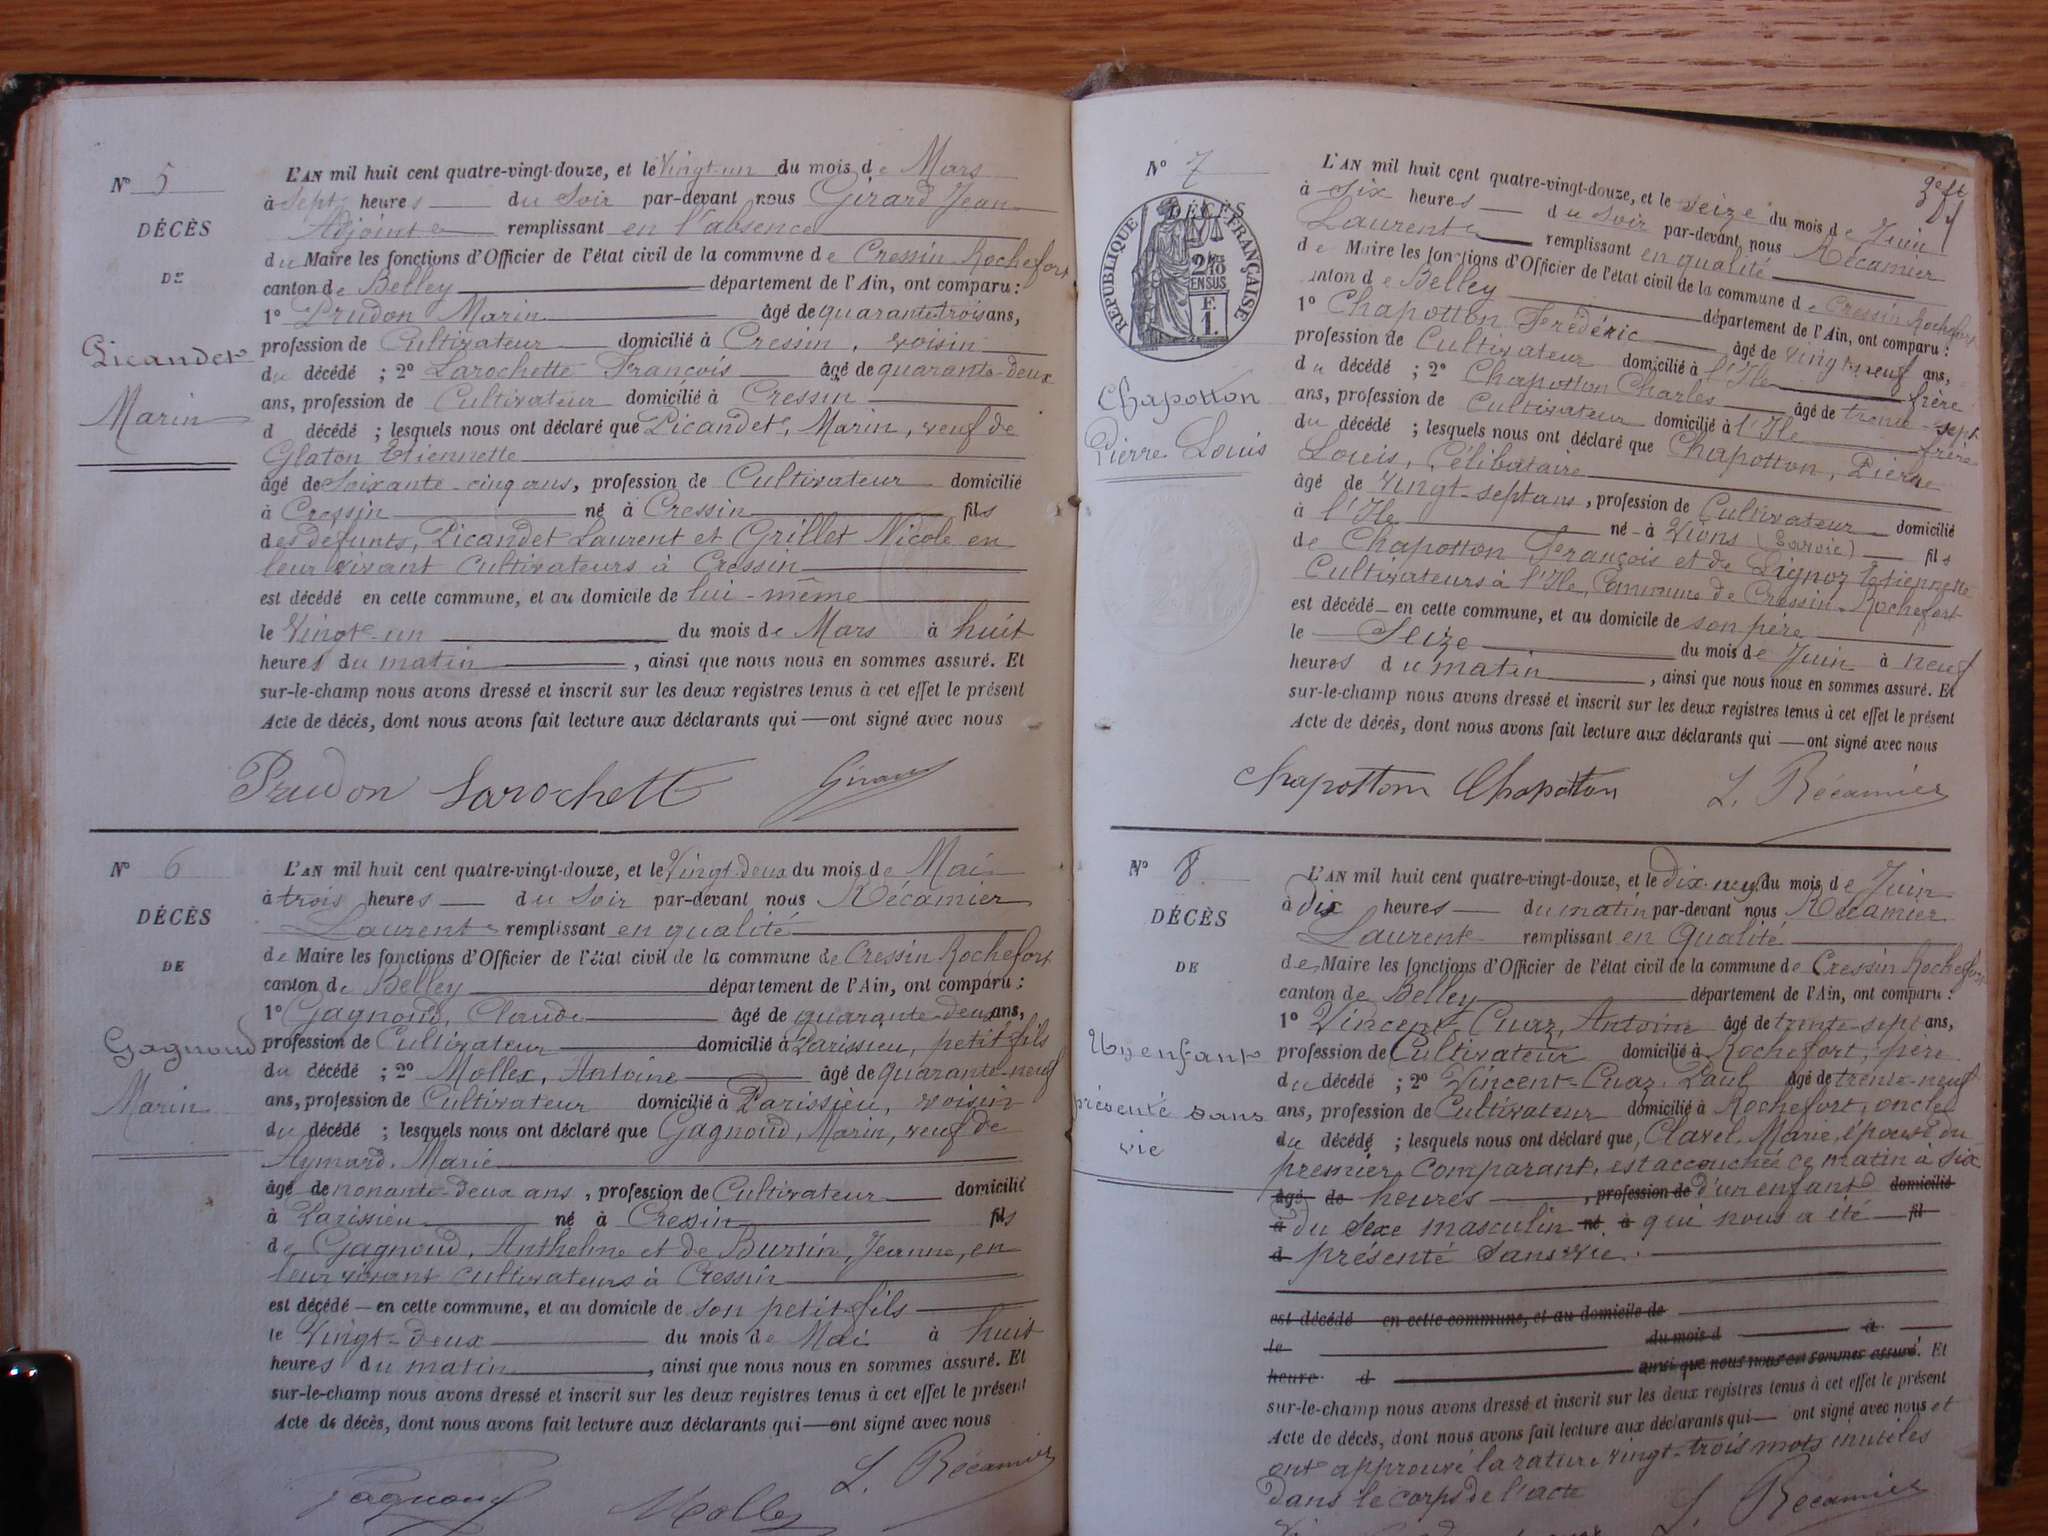 N° 5
DÉCÈS
DE
Picandet
Marin
L'AN mil huit cent quatre-vingt-douze, et le Vingt-un du mois de Mars
à Sept heures du Soir par-devant nous Girard Jean
Adjoint remplissant en l'absence
du Maire les fonctions d'Officier de l'état civil de la commune de Cressin Rochefort
canton de Belley département de l'Ain, ont comparu :
1° Prudon Marin âgé de quarante-trois ans,
profession de Cultivateur domicilié à Cressin, voisin
du décédé ; 2° Larochette François âgé de quarante-deux
ans, profession de Cultivateur domicilié à Cressin
d décédé ; lesquels nous ont déclaré que Picandet, Marin, veuf de
Glaton Etiennette
âgé de Soixante-cinq ans, profession de Cultivateur domicilié
à Cressin né à Cressin fils
des défunts, Picandet Laurent et Grillet Nicole en
leur vivant Cultivateurs à Cressin
est décédé en cette commune, et au domicile de lui-même
le Vingt-un du mois de Mars à huit
heures du matin, ainsi que nous nous en sommes assuré. Et
sur-le-champ nous avons dressé et inscrit sur les deux registres tenus à cet effet le présent
Acte de décès, dont nous avons fait lecture aux déclarants qui — ont signé avec nous
Prudon Larochett Girard
N° 6
DÉCÈS
DE
Gagnoud
Marin
L'AN mil huit cent quatre-vingt-douze, et le Vingt-deux du mois de Mai
à trois heures du Soir par-devant nous Récamier
Laurent remplissant en qualité
de Maire les fonctions d'Officier de l'état civil de la commune de Cressin Rochefort
canton de Belley département de l'Ain, ont comparu :
1° Gagnoud, Claude âgé de quarante-deux ans,
profession de Cultivateur domicilié à Parissieu, petit fils
du décédé ; 2° Mollex, Antoine âgé de quarante-neuf
ans, profession de Cultivateur domicilié à Parissieu, voisin
du décédé ; lesquels nous ont déclaré que Gagnoud, Marin, veuf de
Aymard, Marie
âgé de nonante-deux ans, profession de Cultivateur domicilié
à Parissieu né à Cressin fils
de Gagnoud, Anthelme et de Burtin, Jeanne, en
leur vivant cultivateurs à Cressin
est décédé — en cette commune, et au domicile de son petit-fils
le Vingt-deux du mois de Mai à huit
heures du matin, ainsi que nous nous en sommes assuré. Et
sur-le-champ nous avons dressé et inscrit sur les deux registres tenus à cet effet le présent
Acte de décès, dont nous avons fait lecture aux déclarants qui — ont signé avec nous
Gagnoud Mollex L. Récamier
N° 7
DÉCÈS
RÉPUBLIQUE FRANÇAISE
2/10
EN SUS
F.
1.
Chapotton
Pierre Louis
L'AN mil huit cent quatre-vingt-douze, et le Seize du mois de Juin
à Six heures du Soir par-devant nous Récamier
Laurent remplissant en qualité
de Maire les fonctions d'Officier de l'état civil de la commune de Cressin Rochefort
canton de Belley département de l'Ain, ont comparu :
1° Chapotton Frédéric âgé de vingt-neuf ans,
profession de Cultivateur domicilié à l'Ile frère
du décédé ; 2° Chapotton Charles âgé de trente-sept
ans, profession de Cultivateur domicilié à l'Ile frère
du décédé ; lesquels nous ont déclaré que Chapotton, Pierre
Louis, Célibataire
âgé de Vingt-sept ans, profession de Cultivateur domicilié
à l'Ile né à Vions (Savoie) fils
de Chapotton François et de Pignoz Etiennette
Cultivateurs à l'Ile, Commune de Cressin-Rochefort
est décédé — en cette commune, et au domicile de son père
le Seize du mois de Juin à neuf
heures du matin, ainsi que nous nous en sommes assuré. Et
sur-le-champ nous avons dressé et inscrit sur les deux registres tenus à cet effet le présent
Acte de décès, dont nous avons fait lecture aux déclarants qui — ont signé avec nous
Chapottom Chapotton L. Récamier
N° 8
DÉCÈS
DE
Un enfant
présenté sans
vie
L'AN mil huit cent quatre-vingt-douze, et le dix-neuf du mois de Juin
à dix heures du matin par-devant nous Récamier
Laurent remplissant en Qualité
de Maire les fonctions d'Officier de l'état civil de la commune de Cressin Rochefort
canton de Belley département de l'Ain, ont comparu :
1° Vincent-Cuaz, Antoine âgé de trente-sept ans,
profession de Cultivateur domicilié à Rochefort, père
du décédé ; 2° Vincent-Cuaz, Paul âgé de trente-neuf
ans, profession de Cultivateur domicilié à Rochefort, oncle
du décédé ; lesquels nous ont déclaré que, Clavel, Marie, épouse du
premier comparant, est accouchée ce matin à six
âgé de heures, profession de d'un enfant domicilié
à du Sexe masculin né à qui nous a été fil
d présenté Sans vie.
est décédé en cette commune, et au domicile de
le du mois d à
heure d ainsi que nous nous en sommes assuré. Et
sur-le-champ nous avons dressé et inscrit sur les deux registres tenus à cet effet le présent
Acte de décès, dont nous avons fait lecture aux déclarants qui — ont signé avec nous et
ont approuvé la rature vingt-trois mots inutiles
dans le corps de l'acte L. Récamier